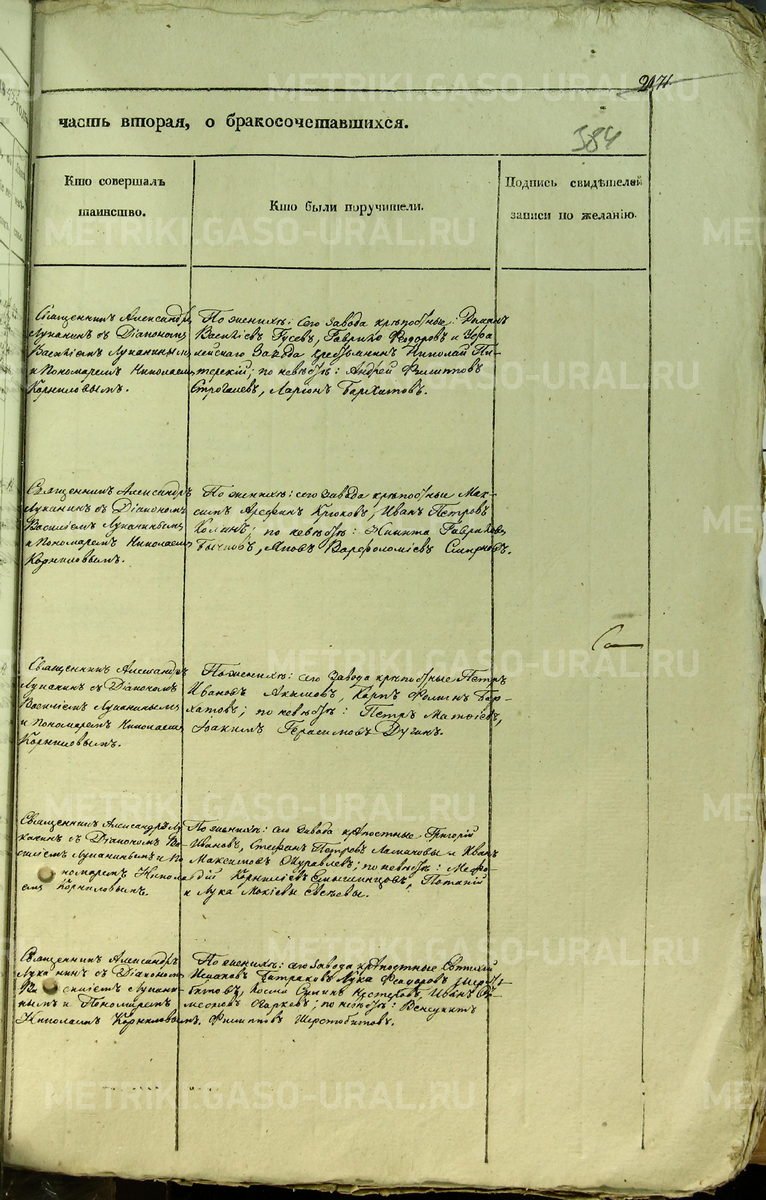 часть вторая, о бракосочетавшихся.
384
Кто совершалъ
таинство.
Кто были поручители.
Подпись свидѣтелей
записи по желанію.
Священникъ Александръ
Лука­нинъ съ Діакономъ
Василіемъ Луканинымъ
и Пономаремъ Николаемъ
Корниловымъ.
По женихѣ: сего завода крѣпостные: Романъ
Василіевъ Гусевъ, Гаврило Феодоровъ и Уфа
лейскаго Завода Николай
по невѣстѣ: Андрей Филипповъ
Ларіонъ Бархатовъ.
Священникъ Александръ
Луканинъ съ Діакономъ
Василіемъ Луканинымъ
и Пономаремъ Николаемъ
Корниловымъ.
По женихѣ: сего завода крѣпостные Мак-
симъ Арефинъ Крюковъ, Иванъ Петровъ
по невѣстѣ: Никита Гавриловъ
Бычковъ, Яковъ Варфоломіевъ Смирновъ.
Священникъ Александръ
Луканинъ съ Діакономъ
Василіемъ Луканинымъ
и Пономаремъ Николаемъ
Корниловымъ.
По женихѣ: сего завода крѣпостные Петръ
Ивановъ Акимовъ, Карпъ Фоминъ Бар-
хатовъ; по невѣстѣ: Петръ Матвіевъ,
Іоакимъ Герасимовъ Дугинъ.
Священникъ Александръ Лу
канинъ съ Діакономъ Ва
силіемъ Луканинымъ и По
номаремъ Никола
емъ Корниловымъ.
По женихѣ: сего завода крѣпостные Григорій
Ивановъ, Стефанъ Петровъ и Иванъ
Максимовъ Журавлевъ; по невѣстѣ: Меѳо-
дій Корниліевъ Потапій
и Лука Мокіевы
Священникъ Александръ
Луканинъ съ Діакономъ
Василіемъ Лукани-
нымъ и Пономаремъ
Николаемъ Корниловымъ.
По женихѣ: сего завода крѣпостные
Исааковъ Лука Феодоровъ Шерсто-
битовъ, Косма Иванъ
по невѣстѣ:
Филипповъ Шерстобитовъ.
METRIKI.GASO-URAL.RU